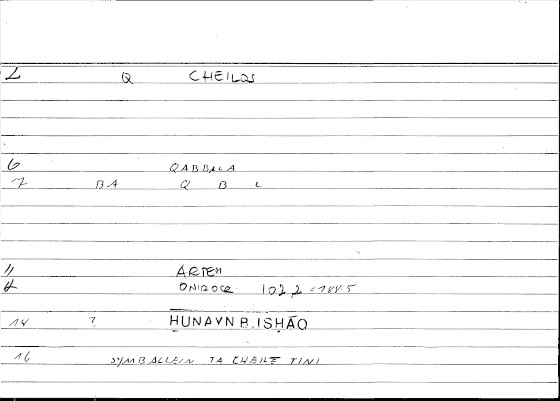 L Q CHEILOS
6 QABBALA
7 BA Q B L
11 ARTEM
ONIROCR 102,2 = 1445
14 ? HUNAYN B. ISHĀQ
16 SYMBALLEIN TA CHEILE TINI